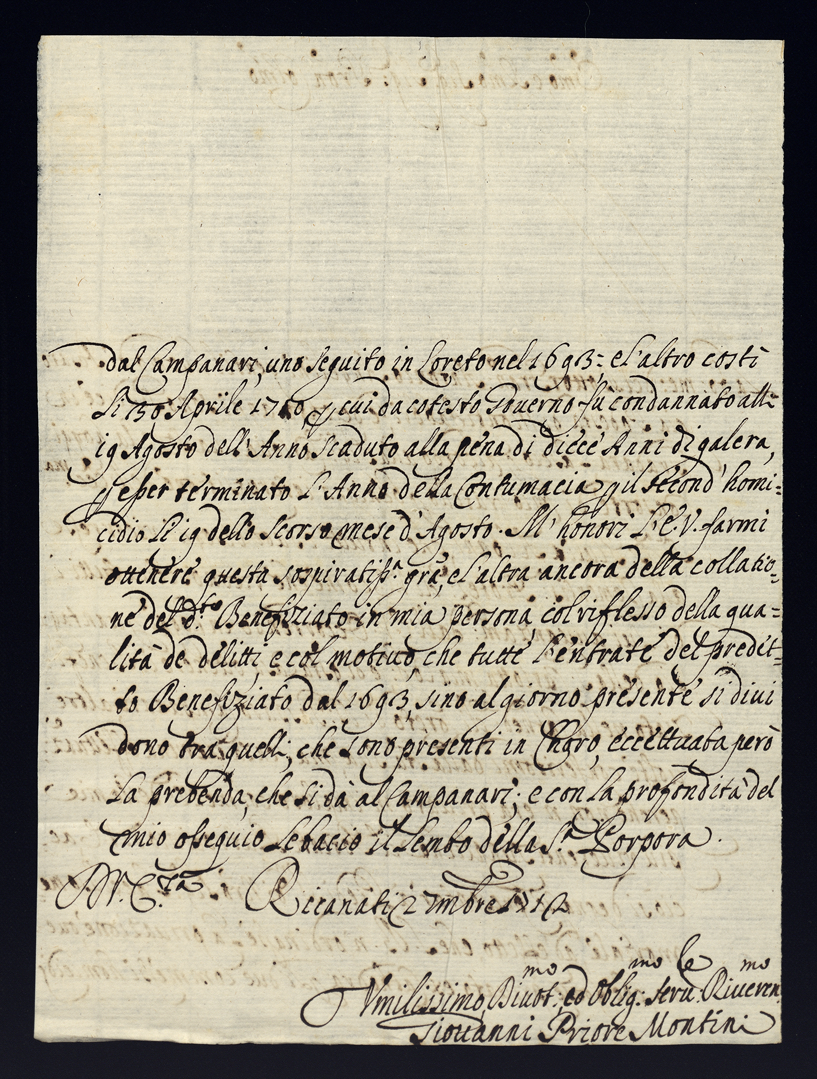 dal Campanari, uno seguito in Loreto nel 1693= e l'altro costì
li 30 Aprile 1710, p cui da cotesto Governo fù condannato alli
19 Agosto dell'Anno scaduto alla pena di diece Anni di galera,
p esser terminato l'Anno della Contumacia p il second' homi=
cidio li 19 dello scorso mese d'Agosto. M'honori l'E.V. farmi
ottenere questa sospiratiss.a grã, e l'altra ancora della collatio=
ne del d.to Benefiziato in mia persona, col riflesso della qua=
lità de delitti, e col motivo, che tutte l'entrate del predet=
to Benefiziato dal 1693, sino al giorno presente si divi
dono tra quelli, che sono presenti in Choro, eccettuata però
la prebenda, che si dà al Campanari; e con la profondità del
mio ossequio le bacio il lembo della S.a Porpora.
Riccanati 2 7mbre 1712
Umilissimo, Divot.mo, ed Oblig.mo Serv.le Riveren.mo
Giovanni Priore Montini